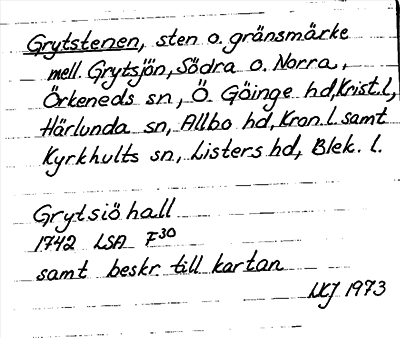 Grytstenen, sten o. gränsmärke
mell. Grytsjön, Södra o. Norra,
Örkeneds sn, Ö. Göinge hd, Krist. l,
Härlunda sn, Allbo hd, Kron. l. samt
Kyrkhults sn, Listers hd, Blek. l.
Grytsiö hall
1742 LSA F30
samt beskr till kartan
1973